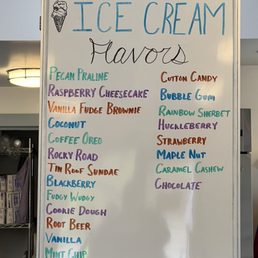 ICE CREAM
Flavors
PECAN PRALINE
RASPBERRY CHEESECAKE
VANILLA FUDGE BROWNIE
COCONUT
COFFEE OREO
ROCKY ROAD
TIN ROOF SUNDAE
BLACKBERRY
FUDGY WUDGY
COOKIE DOUGH
ROOT BEER
VANILLA
MINT CHIP
COTTON CANDY
BUBBLE GUM
RAINBOW SHERBET
HUCKLEBERRY
STRAWBERRY
MAPLE NUT
CARAMEL CASHEW
CHOCOLATE